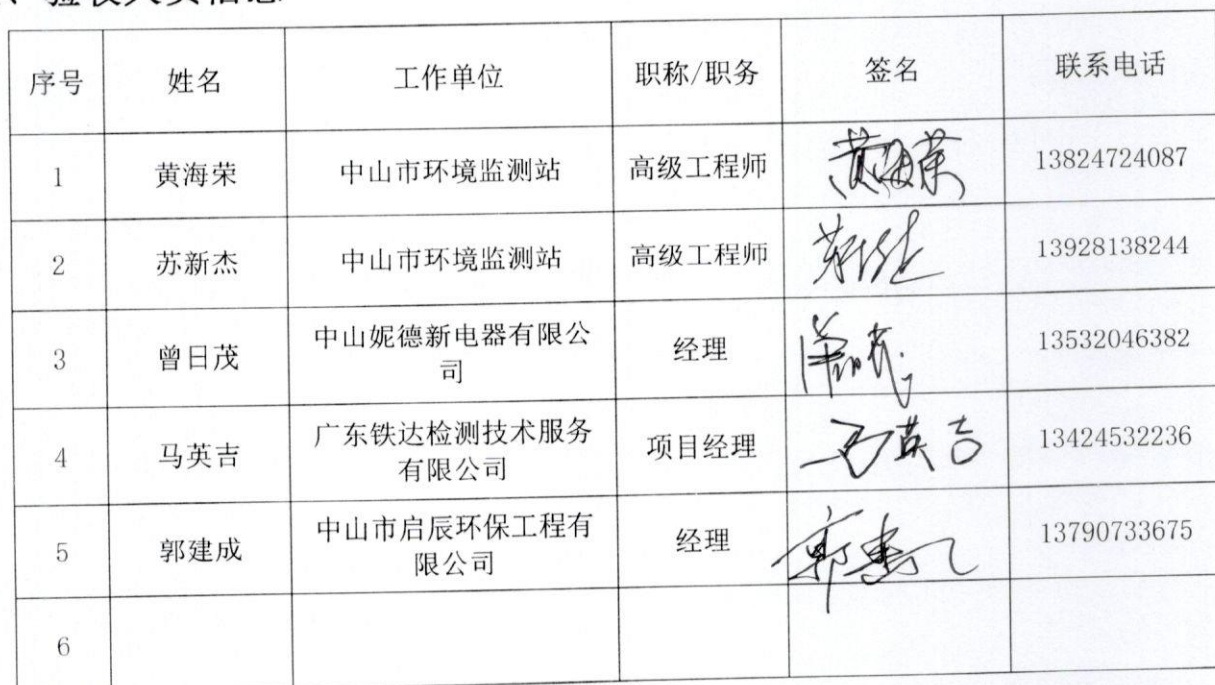 、验收人员信息
序号 姓名 工作单位 职称/职务 签名 联系电话
1 黄海荣 中山市环境监测站 高级工程师 黄海荣 13824724087
2 苏新杰 中山市环境监测站 高级工程师 13928138244
3 曾日茂 中山妮德新电器有限公
司 经理 13532046382
4 马英吉 广东铁达检测技术服务
有限公司 项目经理 马英吉 13424532236
5 郭建成 中山市启辰环保工程有
限公司 经理 13790733675
6